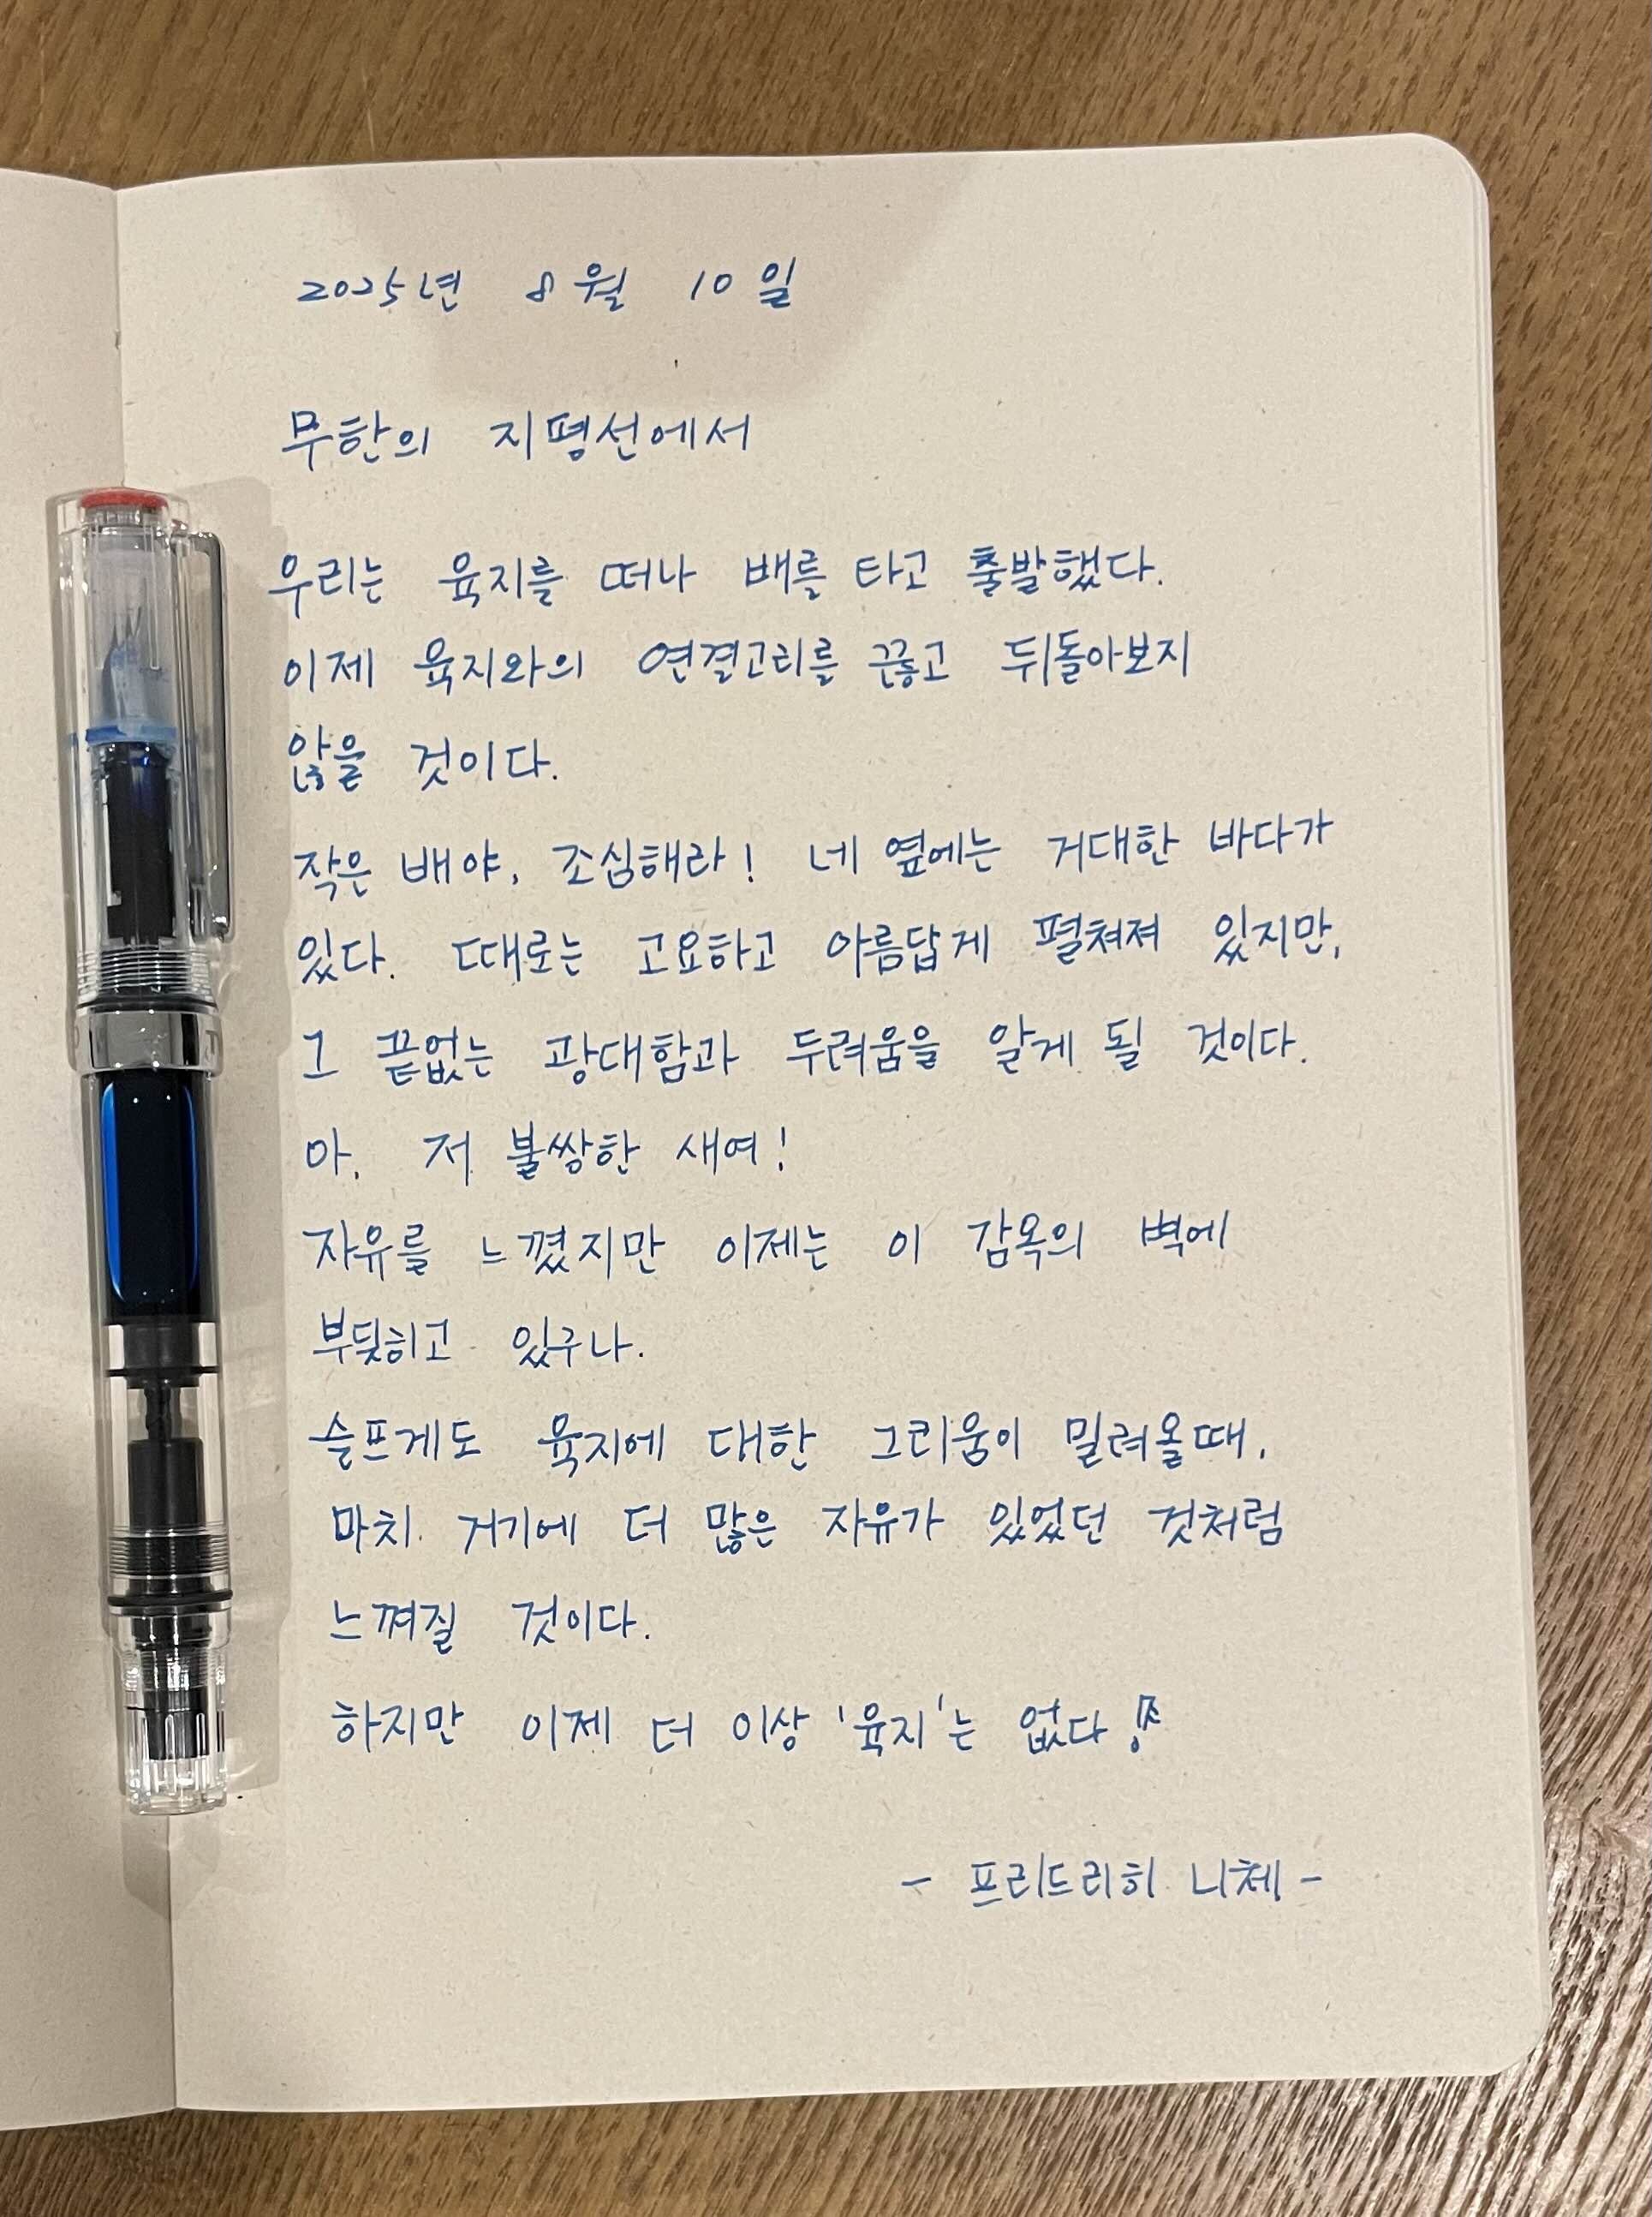 2025년 8월 10일
무한의 지평선에서
우리는 육지를 떠나 배를 타고 출발했다.
이제 육지와의 연결고리를 끊고 뒤돌아보지
않을 것이다.
작은 배야, 조심해라! 네 옆에는 거대한 바다가
있다. 때로는 고요하고 아름답게 펼쳐져 있지만,
그 끝없는 광대함과 두려움을 알게 될 것이다.
아, 저 불쌍한 새여!
자유를 느꼈지만 이제는 이 감옥의 벽에
부딪히고 있구나.
슬프게도 육지에 대한 그리움이 밀려올때,
마치 거기에 더 많은 자유가 있었던 것처럼
느껴질 것이다.
하지만 이제 더 이상 '육지'는 없다
- 프리드리히 니체 -